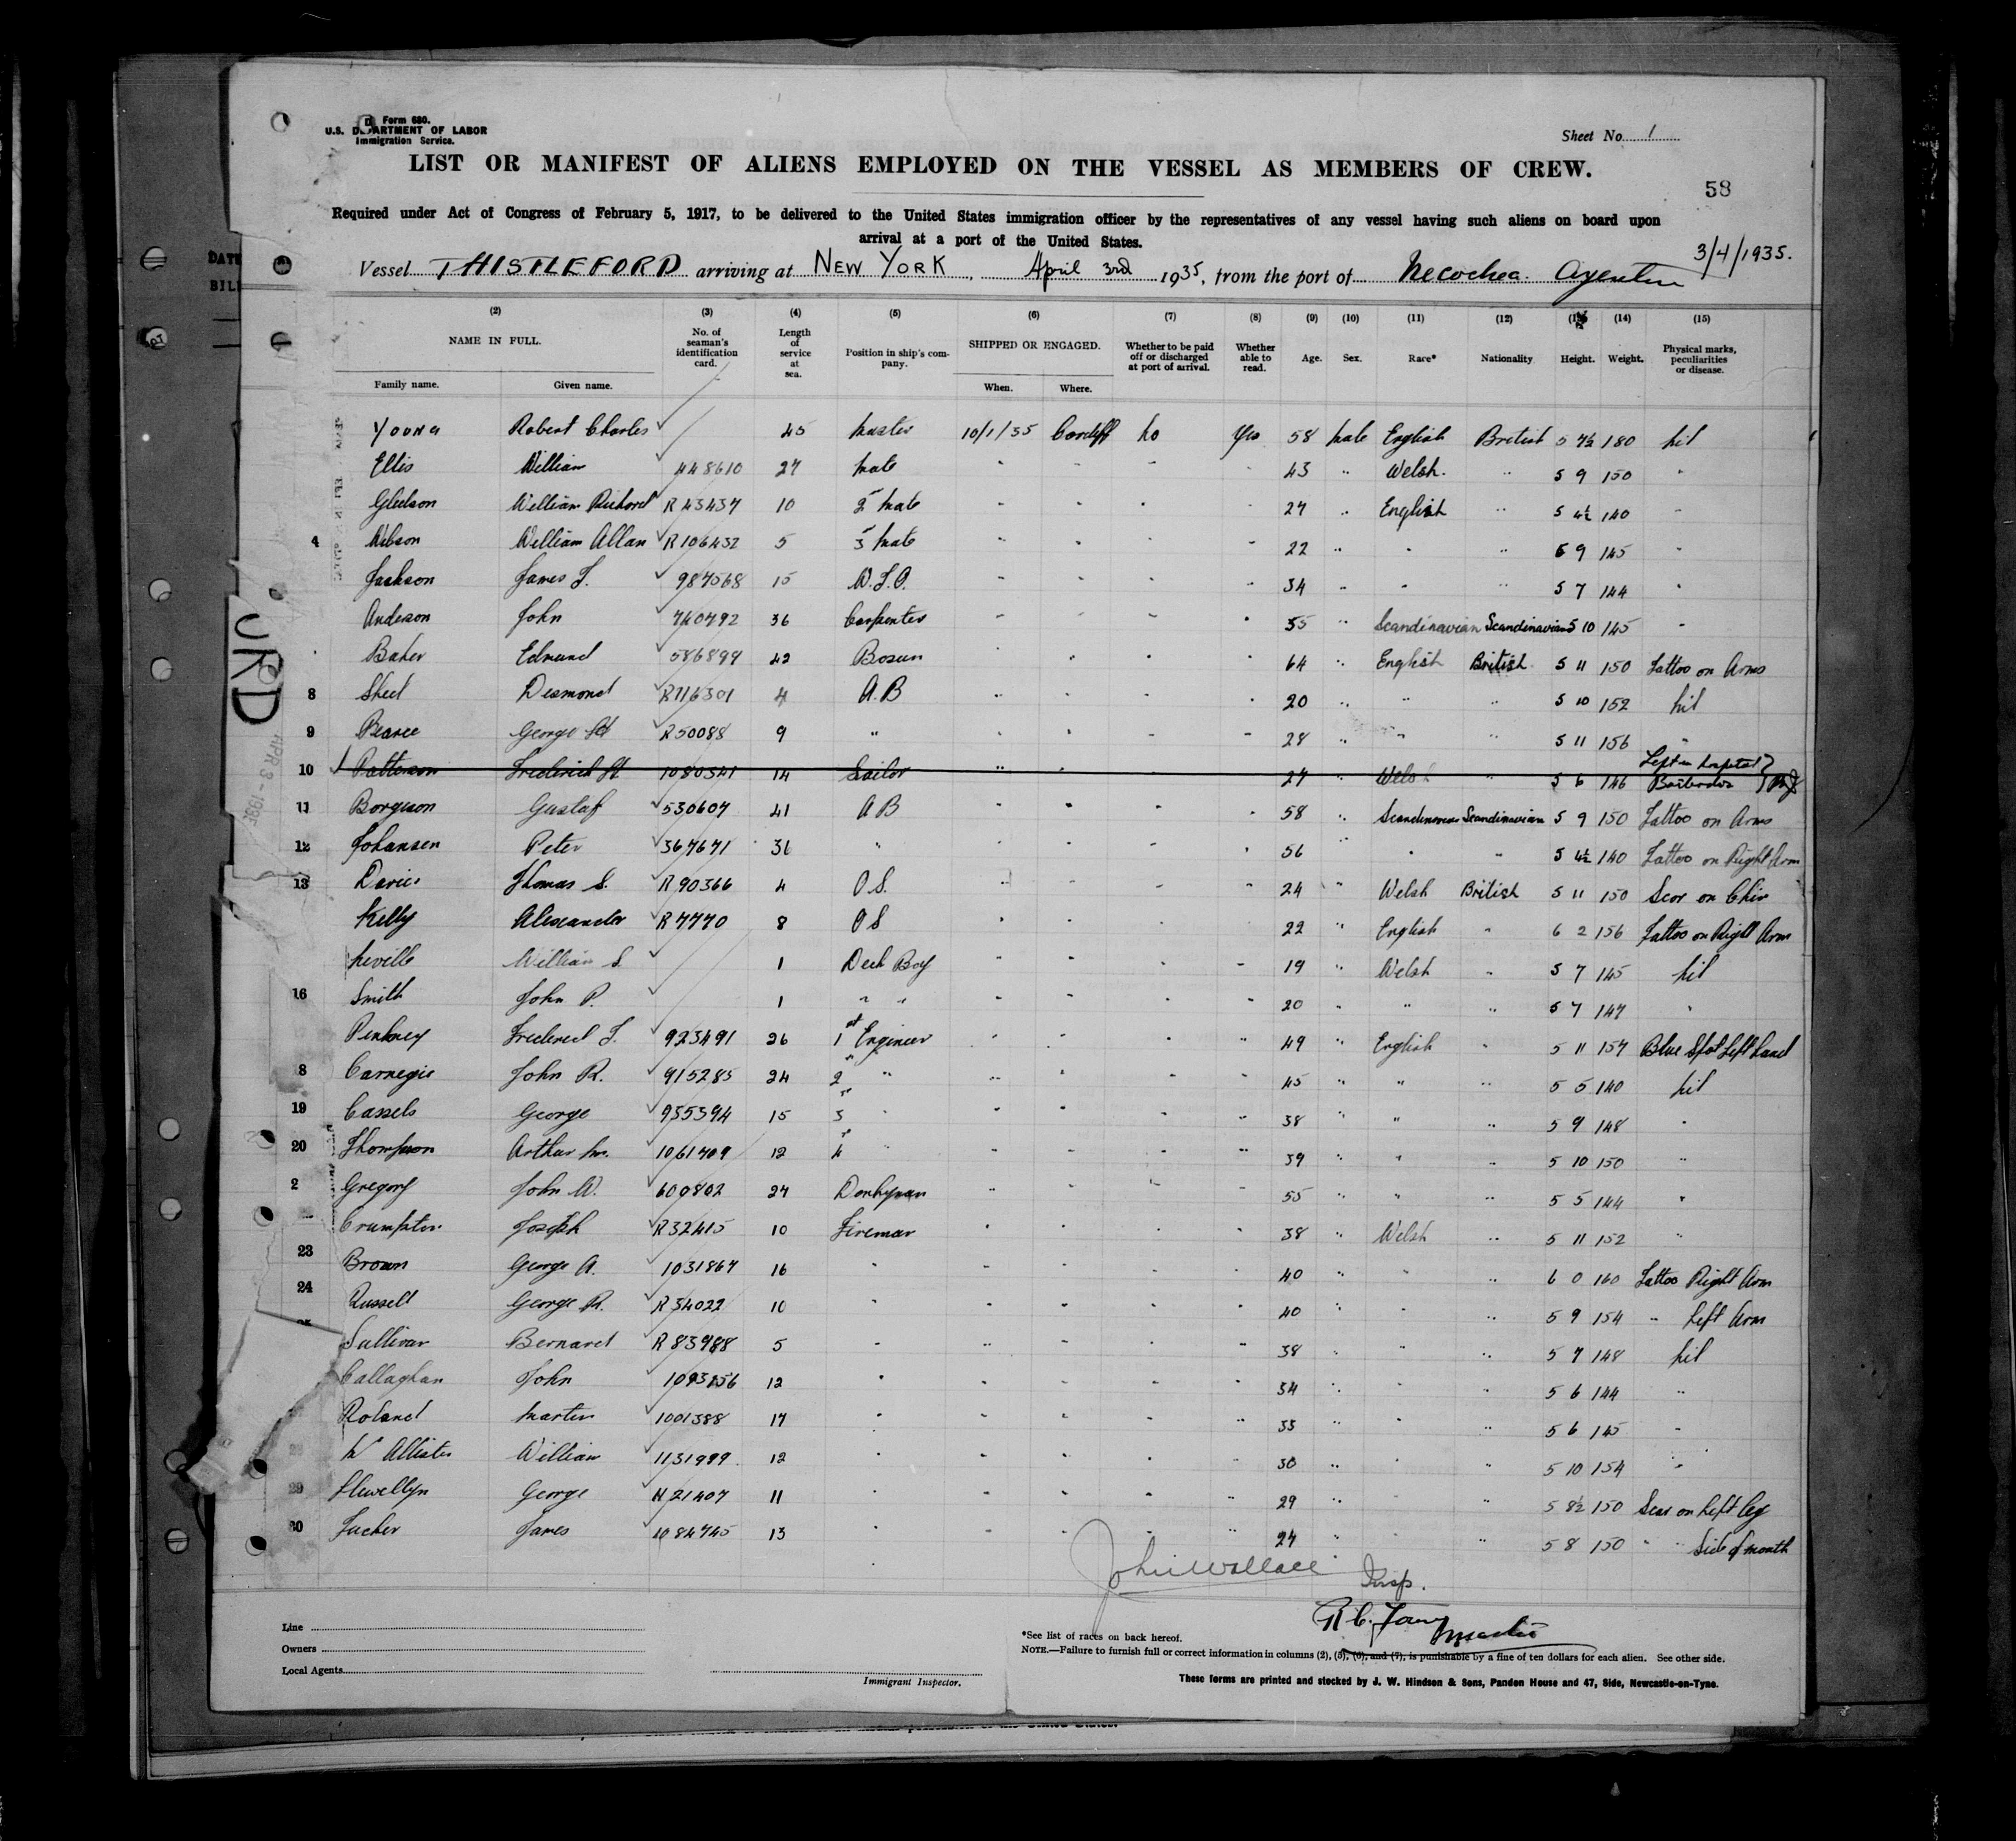 Form 680.
U.S. DEPARTMENT OF LABOR
Immigration Service.
Sheet No. 1
LIST OR MANIFEST OF ALIENS EMPLOYED ON THE VESSEL AS MEMBERS OF CREW.
58
Required under Act of Congress of February 5, 1917, to be delivered to the United States immigration officer by the representatives of any vessel having such aliens on board upon
arrival at a port of the United States.
3/4/1935.
Vessel THISTLEFORD arriving at NEW YORK, April 3rd 1935, from the port of Necochea
(2) (3) (4) (5) (6) (7) (8) (9) (10) (11) (12) (14) (15)
NAME IN FULL. Family name. Given name. No. of seaman's identification card. Length of service at sea. Position in ship's company. SHIPPED OR ENGAGED. When. Where. Whether to be paid off or discharged at port of arrival. Whether able to read. Age. Sex. Race* Nationality Height. Weight. Physical marks, peculiarities or disease.
Young Robert Charles 45 Master 10/1/35 Cardiff No Yes 58 Male English British 5 7½ 180 Nil
Ellis William 448610 27 Mate " " " " 43 " Welsh. " 5 9 150 "
William Richard R 43437 10 2nd Mate " " " " 27 " English " 5 4½ 140 "
4 Wilson William Allan R 106432 5 3rd Mate " " " " 22 " " " 5 9 145 "
Jackson James 987568 15 W.T.O. " " " " 34 " " " 5 7 144 "
Anderson John 740792 36 Carpenter " " " " 55 " Scandinavian Scandinavian 5 10 145 "
Baker Edmund 586899 42 Bosun " " " " 64 " English British 5 11 150 Tattoo on Arms
8 Desmond R116301 4 A.B " " " " 20 " " " 5 10 152 Nil
9 Pearce George R50088 9 " " " " " 28 " " " 5 11 156 "
10 Patterson Frederick 1080341 14 Sailor " " " " 27 " Welsh " 5 6 146 Left in hospital Barbados
11 Gustaf 530607 41 A B " " " " 58 " Scandinavian Scandinavian 5 9 150 Tattoo on Arms
12 Johansen Peter 367671 36 " " " " " 56 " " " 5 4½ 140 Tattoo on Right Arm
13 Davies Thomas S. R 90366 4 O S. " " " " 24 " Welsh British 5 11 150 Scar on Chin
Kelly Alexander R 7770 8 O S " " " " 22 " English " 6 2 156 Tattoo on Right Arm
Neville William S. 1 Deck Boy " " " " 19 " Welsh " 5 7 145 Nil
16 Smith John P. 1 " " " " " " 20 " " " 5 7 147 "
Frederick 923491 26 1st Engineer " " " " 49 " English " 5 11 157 Blue Spot Left hand
8 Carnegie John R. 915285 24 2nd " " " " " 45 " " " 5 5 140 Nil
19 Cassels George 935394 15 3rd " " " " " 38 " " " 5 9 148 "
20 Thompson Arthur 1061709 12 4th " " " " " 39 " " " 5 10 150 "
2 Gregory John W. 600802 27 Donkeyman " " " " 55 " " " 5 5 144 "
Crumpton Joseph R32415 10 Fireman " " " " 38 " Welsh " 5 11 152 "
23 Brown George A. 1031867 16 " " " " " 40 " " " 6 0 160 Tattoo Right Arm
24 Russell George R. R 34022 10 " " " " " 40 " " " 5 9 154 " Left Arm
Sullivan Bernard R 83988 5 " " " " " 38 " " " 5 7 148 Nil
Callaghan John 12 " " " " " 34 " " " 5 6 144 "
Roland Martin 1001388 17 " " " " " 33 " " " 5 6 145 "
McAllister William 1131999 12 " " " " " 30 " " " 5 10 154 "
29 Llewellyn George 21407 11 " " " " " 29 " " " 5 8½ 150 Scar on Left leg
30 Tucker James 1084745 13 " " " " " 24 " " " 5 8 150 " " Side of mouth
John Wallace Insp.
R C. Young Master
Line
Owners
Local Agents
Immigrant Inspector.
*See list of races on back hereof.
NOTE.—Failure to furnish full or correct information in columns (2), (5), (6), and (7), is punishable by a fine of ten dollars for each alien. See other side.
These forms are printed and stocked by J. W. Hindson & Sons, Pandon House and 47, Side, Newcastle-on-Tyne.